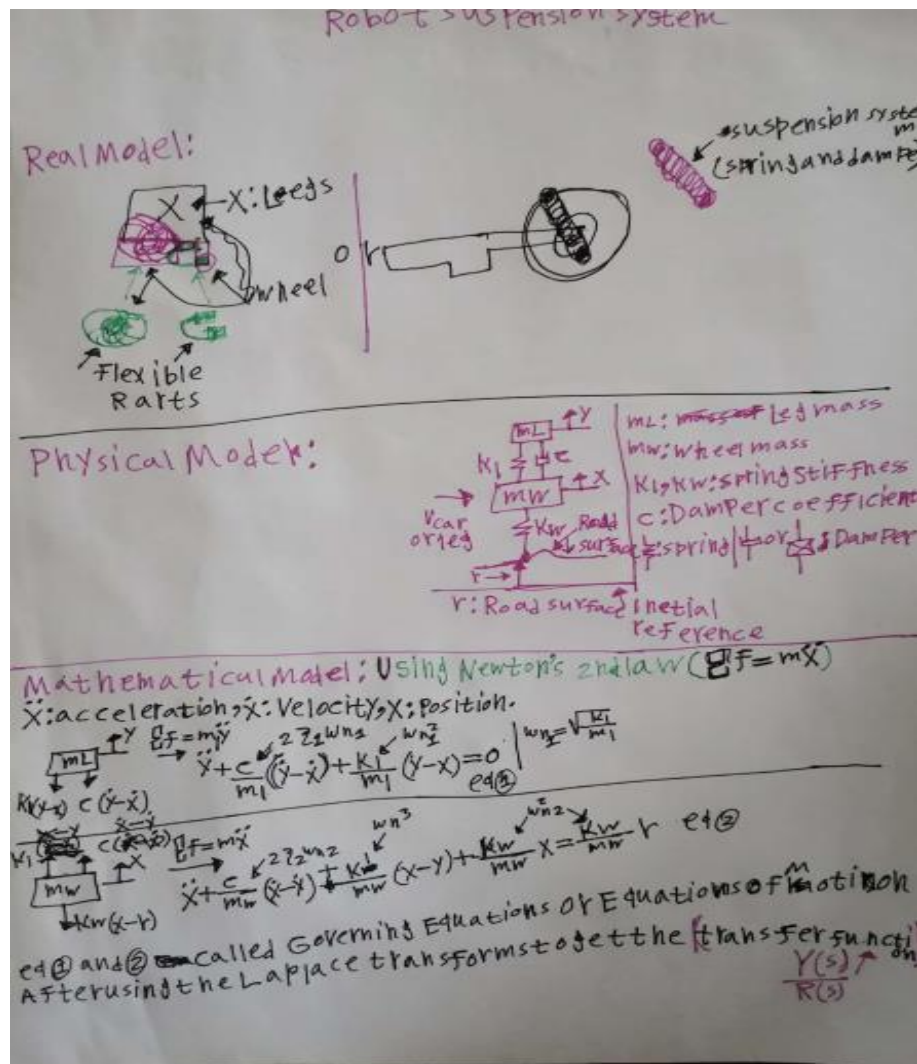 Robot suspension system
Real Model:
suspension system
(spring and damper
X
X: Leegs
or
wheel
Flexible
Rarts
Physical Model:
mL
Y
K1
c
mw
X
Vcar
or leg
Kw
Road
surface
r
mL: Leg mass
mw: wheel mass
K1, Kw: spring stiffness
c: Damper coefficient
: spring | or : Damper
r: Road surface
inetial
reference
Mathematical Model: Using Newton's 2nd law (Σf=mẍ)
Ẍ: acceleration, ẋ: Velocity, X: Position.
mL Y Σf=m₁ÿ
2Z₁wn₁ wn₁²
ÿ + c/m₁ (ẏ-ẋ) + K1/m₁ (y-x) = 0 eq① wn₁=√(K1/m₁)
K1(y-x) c(ẏ-ẋ)
K1 c
mw X Σf=mẍ
2Z₂wn₂ wn³ wn₂²
ẍ + c/mw (ẋ-ẏ) + K1/mw (x-y) + Kw/mw x = Kw/mw r eq②
Kw(x-r)
eq① and ② called Governing Equations or Equations of motion
After using the Laplace transforms to gett the transfer function
Y(s)/R(s)